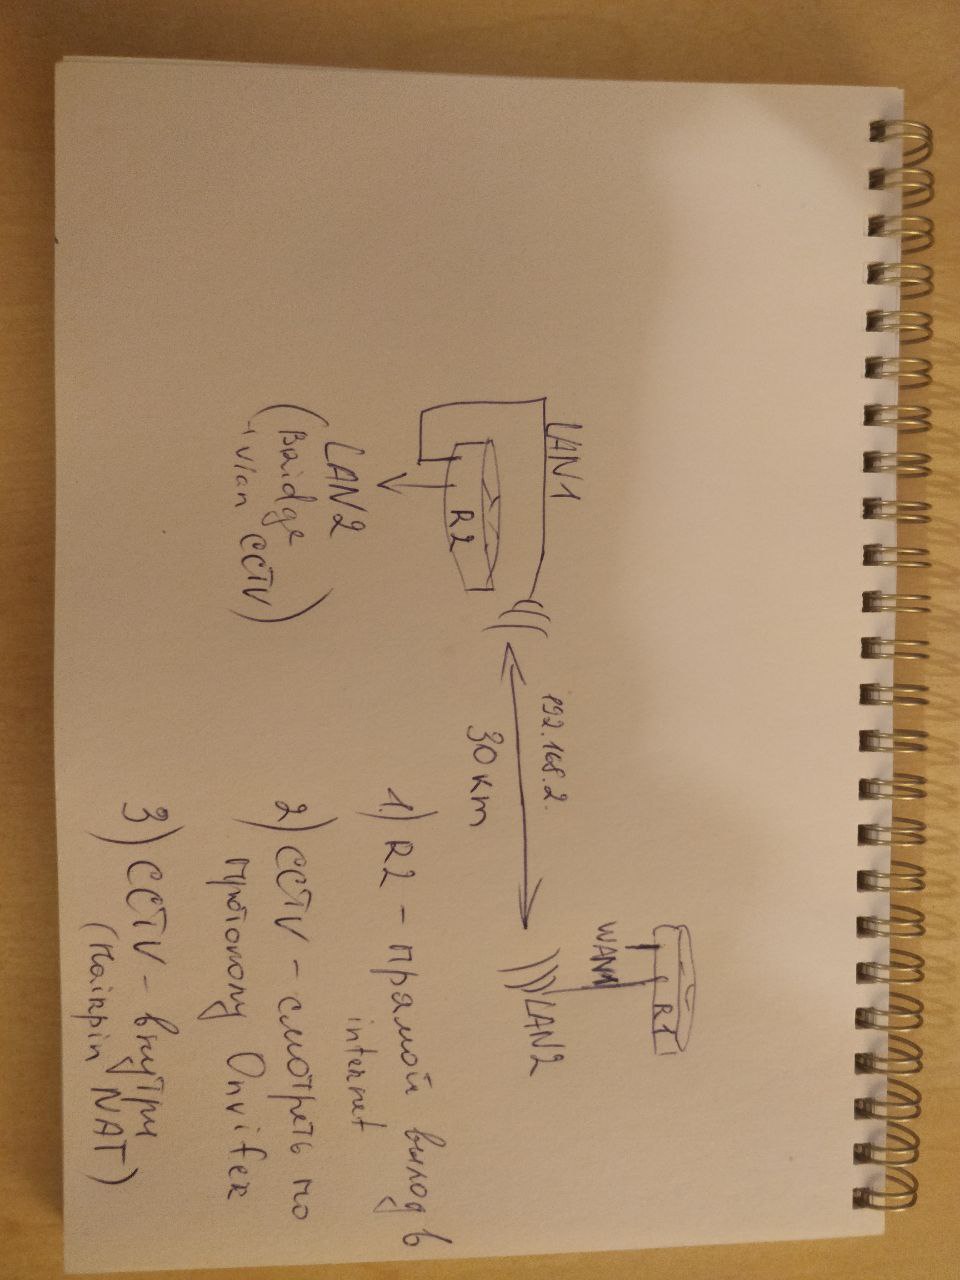 LAN1
R2
LAN2
(Bridge
+ vlan CCTV)
192.168.2
30 km
R1
WAN1
LAN2
1.) R2 - прямой выход в
internet
2) CCTV - смотреть по
протоколу Onvifer
3) CCTV - внутри
(Hairpin NAT)